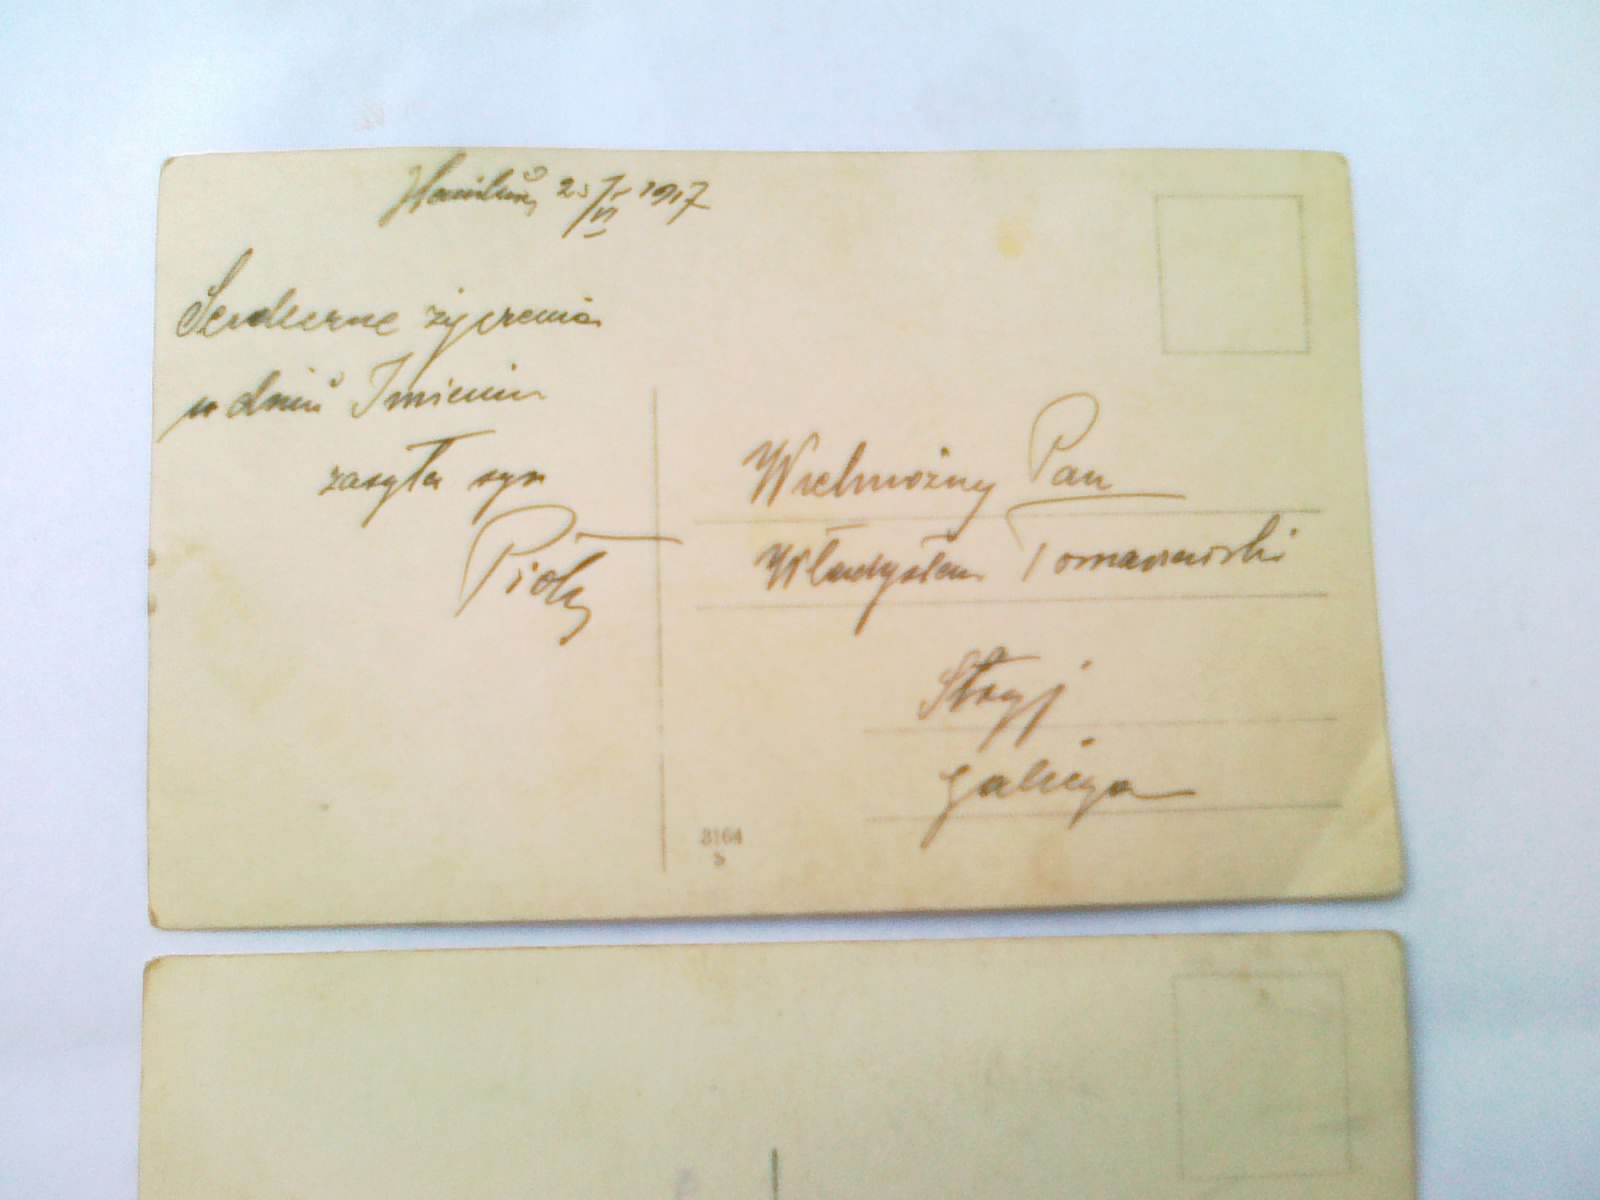 23/VI 1917
Serdeczne życzenia
w dniu Imienin
zasyła syn
Piotr
Wielmożny Pan
Władysław Tomaszewski
Stryj
Galicya
3164
S